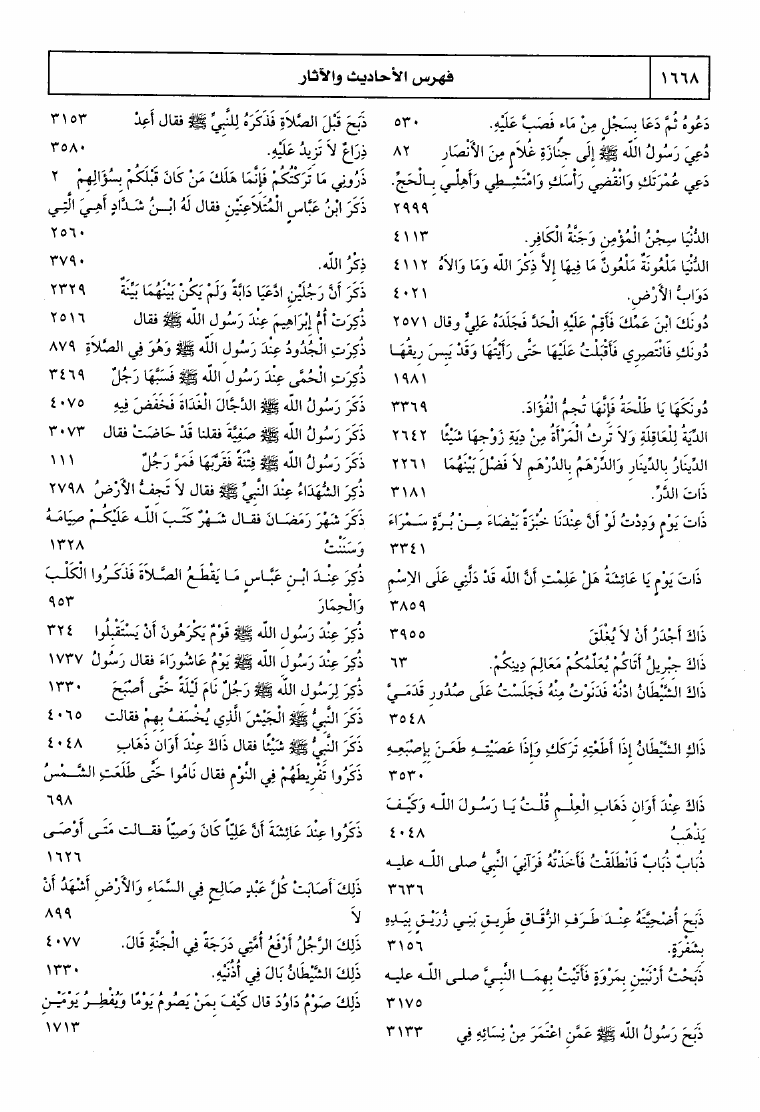 ١٦٦٨
فهرس الأحاديث والآثار
دَعُوهُ ثُمَّ دَعَا بِسَجْلٍ مِنْ مَاء فَصَبَّ عَلَيْهِ. ٥٣٠
دُعِيَ رَسُولُ الله ﷺ إِلَى جِنَازَةِ غُلَامٍ مِنَ الأَنْصَارِ ٨٢
دَعِي عُمْرَتَكِ وَانْقُضِي رَأْسَكِ وَامْتَشِطِي وَأَهِلِّي بِالْحَجِّ.
٢٩٩٩
الدُّنْيَا سِجْنُ الْمُؤْمِنِ وَجَنَّةُ الْكَافِرِ. ٤١١٣
الدُّنْيَا مَلْعُونَةٌ مَلْعُونٌ مَا فِيهَا إِلاَّ ذِكْرَ الله وَمَا وَالاَهُ ٤١١٢
دَوَابُّ الأَرْضِ. ٤٠٢١
دُونَكَ ابْنَ عَمِّكَ فَأَقِمْ عَلَيْهِ الْحَدَّ فَجَلَدَهُ عَلِيٌّ وقال ٢٥٧١
دُونَكِ فَانْتَصِرِي فَأَقْبَلْتُ عَلَيْهَا حَتَّى رَأَيْتُهَا وَقَدْ يَبِسَ رِيقُهَا
١٩٨١
دُونَكَهَا يَا طَلْحَةُ فَإِنَّهَا تُجِمُّ الْفُؤَادَ. ٣٣٦٩
الدِّيَةُ لِلْعَاقِلَةِ وَلاَ تَرِثُ الْمَرْأَةُ مِنْ دِيَةِ زَوْجِهَا شَيْئًا ٢٦٤٢
الدِّينَارُ بِالدِّينَارِ وَالدِّرْهَمُ بِالدِّرْهَمِ لاَ فَضْلَ بَيْنَهُمَا ٢٢٦١
ذَاتَ الدَّرِّ. ٣١٨١
ذَاتَ يَوْمٍ وَدِدْتُ لَوْ أَنَّ عِنْدَنَا خُبْزَةً بَيْضَاءَ مِنْ بُرَّةٍ سَمْرَاءَ
٣٣٤١
ذَاتَ يَوْمٍ يَا عَائِشَةُ هَلْ عَلِمْتِ أَنَّ الله قَدْ دَلَّنِي عَلَى الاِسْمِ
٣٨٥٩
ذَاكَ أَجْدَرُ أَنْ لاَ يُغْلَقَ ٣٩٥٥
ذَاكَ جِبْرِيلُ أَتَاكُمْ يُعَلِّمُكُمْ مَعَالِمَ دِينِكُمْ. ٦٣
ذَاكَ الشَّيْطَانُ ادْنُهْ فَدَنَوْتُ مِنْهُ فَجَلَسْتُ عَلَى صُدُورِ قَدَمَيَّ
٣٥٤٨
ذَاكِ الشَّيْطَانُ إِذَا أَطَعْتِهِ تَرَكَكِ وَإِذَا عَصَيْتِهِ طَعَنَ بِإِصْبَعِهِ
٣٥٣٠
ذَاكَ عِنْدَ أَوَانِ ذَهَابِ الْعِلْمِ قُلْتُ يَا رَسُولَ الله وَكَيْفَ
يَذْهَبُ ٤٠٤٨
ذُبَابٌ ذُبَابٌ فَانْطَلَقْتُ فَأَخَذْتُهُ فَرَآنِيَ النَّبِيُّ صلى الله عليه
٣٦٣٦
ذَبَحَ أُضْحِيَّتَهُ عِنْدَ طَرَفِ الزُّقَاقِ طَرِيقِ بَنِي زُرَيْقٍ بِيَدِهِ
بِشَفْرَةٍ. ٣١٥٦
ذَبَحْتُ أَرْنَبَيْنِ بِمَرْوَةٍ فَأَتَيْتُ بِهِمَا النَّبِيَّ صلى الله عليه
٣١٧٥
ذَبَحَ رَسُولُ الله ﷺ عَمَّنِ اعْتَمَرَ مِنْ نِسَائِهِ فِي ٣١٣٣
ذَبَحَ قَبْلَ الصَّلاَةِ فَذَكَرَهُ لِلنَّبِيِّ ﷺ فقال أَعِدْ ٣١٥٣
ذِرَاعٌ لاَ تَزِيدُ عَلَيْهِ. ٣٥٨٠
ذَرُونِي مَا تَرَكْتُكُمْ فَإِنَّمَا هَلَكَ مَنْ كَانَ قَبْلَكُمْ بِسُؤَالِهِمْ ٢
ذَكَرَ ابْنُ عَبَّاسٍ الْمُتَلاَعِنَيْنِ فقال لَهُ ابْنُ شَدَّادٍ أَهِيَ الَّتِي
٢٥٦٠
ذِكْرُ اللَّه. ٣٧٩٠
ذَكَرَ أَنَّ رَجُلَيْنِ ادَّعَيَا دَابَّةً وَلَمْ يَكُنْ بَيْنَهُمَا بَيِّنَةٌ ٢٣٢٩
ذُكِرَتْ أُمُّ إِبْرَاهِيمَ عِنْدَ رَسُولِ الله ﷺ فقال ٢٥١٦
ذُكِرَتِ الْجُدُودُ عِنْدَ رَسُولِ الله ﷺ وَهُوَ فِي الصَّلاَةِ ٨٧٩
ذُكِرَتِ الْحُمَّى عِنْدَ رَسُولِ الله ﷺ فَسَبَّهَا رَجُلٌ ٣٤٦٩
ذَكَرَ رَسُولُ الله ﷺ الدَّجَّالَ الْغَدَاةَ فَخَفَضَ فِيهِ ٤٠٧٥
ذَكَرَ رَسُولُ الله ﷺ صَفِيَّةَ فقلنا قَدْ حَاضَتْ فقال ٣٠٧٣
ذَكَرَ رَسُولُ الله ﷺ فِتْنَةً فَقَرَّبَهَا فَمَرَّ رَجُلٌ ١١١
ذُكِرَ الشُّهَدَاءُ عِنْدَ النَّبِيِّ ﷺ فقال لاَ تَجِفُّ الأَرْضُ ٢٧٩٨
ذَكَرَ شَهْرَ رَمَضَانَ فقال شَهْرٌ كَتَبَ الله عَلَيْكُمْ صِيَامَهُ
وَسَنَنْتُ ١٣٢٨
ذُكِرَ عِنْدَ ابْنِ عَبَّاسٍ مَا يَقْطَعُ الصَّلاَةَ فَذَكَرُوا الْكَلْبَ
وَالْحِمَارَ ٩٥٣
ذُكِرَ عِنْدَ رَسُولِ الله ﷺ قَوْمٌ يَكْرَهُونَ أَنْ يَسْتَقْبِلُوا ٣٢٤
ذُكِرَ عِنْدَ رَسُولِ الله ﷺ يَوْمُ عَاشُورَاءَ فقال رَسُولُ ١٧٣٧
ذُكِرَ لِرَسُولِ الله ﷺ رَجُلٌ نَامَ لَيْلَةً حَتَّى أَصْبَحَ ١٣٣٠
ذَكَرَ النَّبِيُّ ﷺ الْجَيْشَ الَّذِي يُخْسَفُ بِهِمْ فقالت ٤٠٦٥
ذَكَرَ النَّبِيُّ ﷺ شَيْئًا فقال ذَاكَ عِنْدَ أَوَانِ ذَهَابِ ٤٠٤٨
ذَكَرُوا تَفْرِيطَهُمْ فِي النَّوْمِ فقال نَامُوا حَتَّى طَلَعَتِ الشَّمْسُ
٦٩٨
ذَكَرُوا عِنْدَ عَائِشَةَ أَنَّ عَلِيًّا كَانَ وَصِيًّا فقالت مَتَى أَوْصَى
١٦٢٦
ذَلِكَ أَصَابَتْ كُلَّ عَبْدٍ صَالِحٍ فِي السَّمَاءِ وَالأَرْضِ أَشْهَدُ أَنْ
لاَ ٨٩٩
ذَلِكَ الرَّجُلُ أَرْفَعُ أُمَّتِي دَرَجَةً فِي الْجَنَّةِ قَالَ. ٤٠٧٧
ذَلِكَ الشَّيْطَانُ بَالَ فِي أُذُنَيْهِ. ١٣٣٠
ذَلِكَ صَوْمُ دَاوُدَ قال كَيْفَ بِمَنْ يَصُومُ يَوْمًا وَيُفْطِرُ يَوْمَيْنِ
١٧١٣